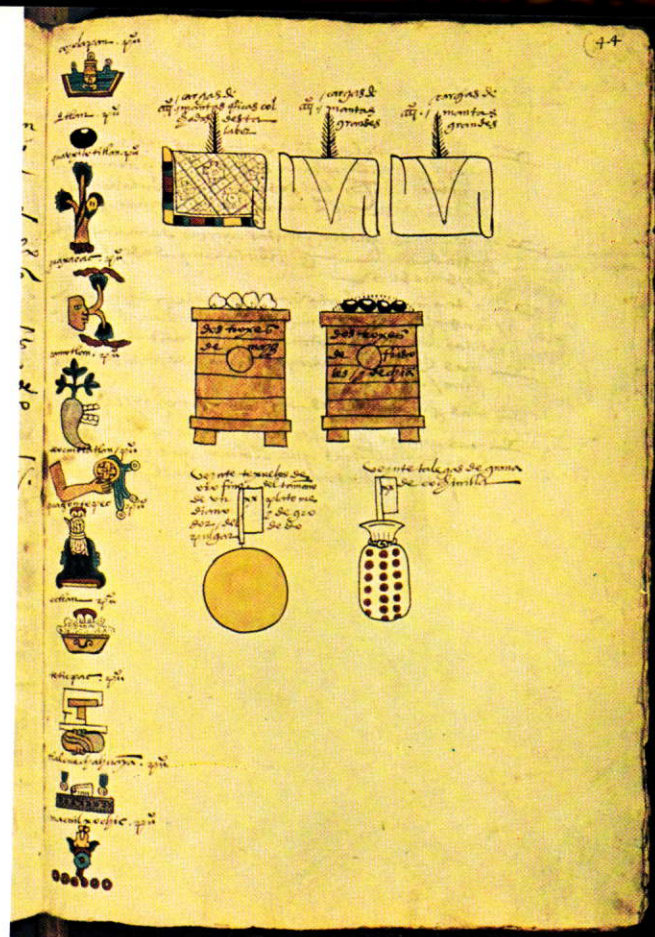 44
coyolapan. pu°
etlan. pu°
quauxilotitlan. pu°
guaxacac. pu°
camotlan. pu°
teocuitlatlan. pu°
quatzontepec. pu°
octlan. pu°
teticpac. pu°
tlalcuechahuaya. pu°
macuilxochic. pu°
cargas de
mantas
desta
labor
cargas de
mantas
grandes
cargas de
mantas
grandes
dos troxes
de mayz
dos troxes
de friso
les y de chia
veynte texuelos de
oro fino del tamaño
de un plato me
diano y de gro
dor del dedo
pulgar
veynte talegas de grana
de cochinilla